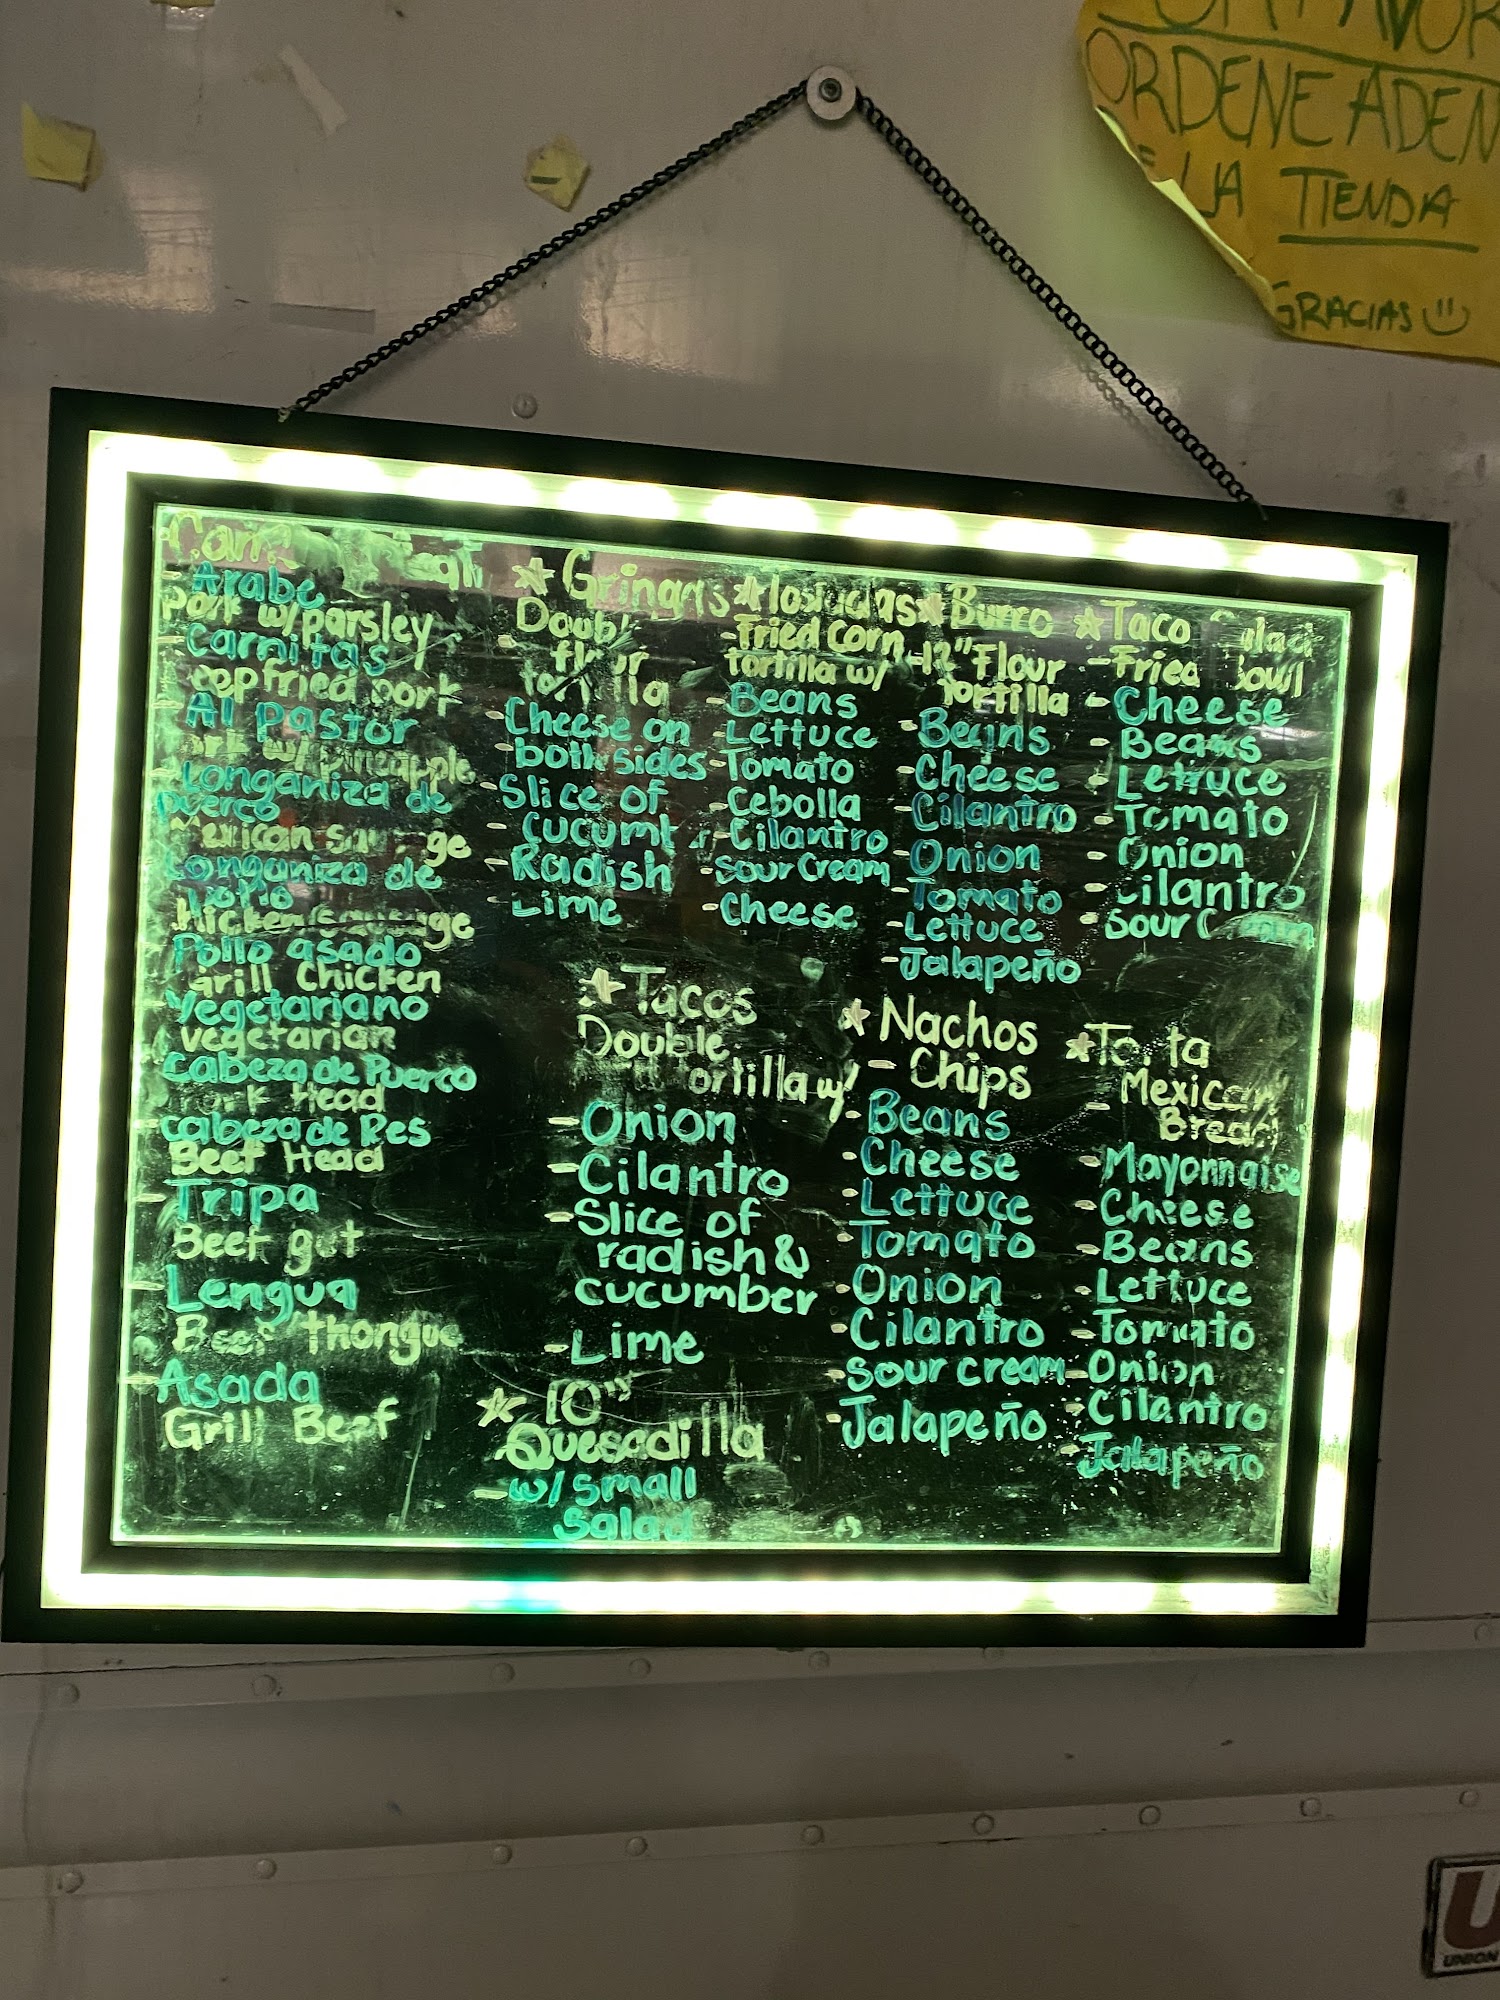 ORDENE
LA TIENDA
GRACIAS
- Arabe
pork w/parsley
- Carnitas
fried pork
- Al pastor
w/ pineapple
- Longaniza de
puerco
Mexican
- Longaniza de
Pollo
- Pollo asado
Grill Chicken
- Vegetariano
vegetarian
- Cabeza de Puerco
Pork Head
- cabeza de Res
Beef Head
- Tripa
Beef gut
- Lengua
Beef thongue
- Asada
Grill Beef
☆ Gringas
- Double
flour
tortilla
- Cheese on
both sides
- Slice of
cucumber
- Radish
- Lime
☆ Tostadas
- Fried Corn
tortilla w/
- Beans
- Lettuce
- Tomato
- Cebolla
- Cilantro
- Sour Cream
- Cheese
☆ Burro
- 12" Flour
Tortilla
- Beans
- Cheese
- Cilantro
- Onion
- Tomato
- Lettuce
- Jalapeño
☆ Taco Salad
- Fried Bowl
- Cheese
- Beans
- Lettuce
- Tomato
- Onion
- Cilantro
- Sour Cream
☆ Tacos
Double
tortilla w/
- Onion
- Cilantro
- Slice of
radish &
cucumber
- Lime
☆ 10"
Quesadilla
- w/ Small
Salad
☆ Nachos
- Chips
- Beans
- Cheese
- Lettuce
- Tomato
- Onion
- Cilantro
- Sour cream
- Jalapeño
☆ Torta
- Mexican
Bread
- Mayonnaise
- Cheese
- Beans
- Lettuce
- Tomato
- Onion
- Cilantro
- Jalapeño
U
UNION